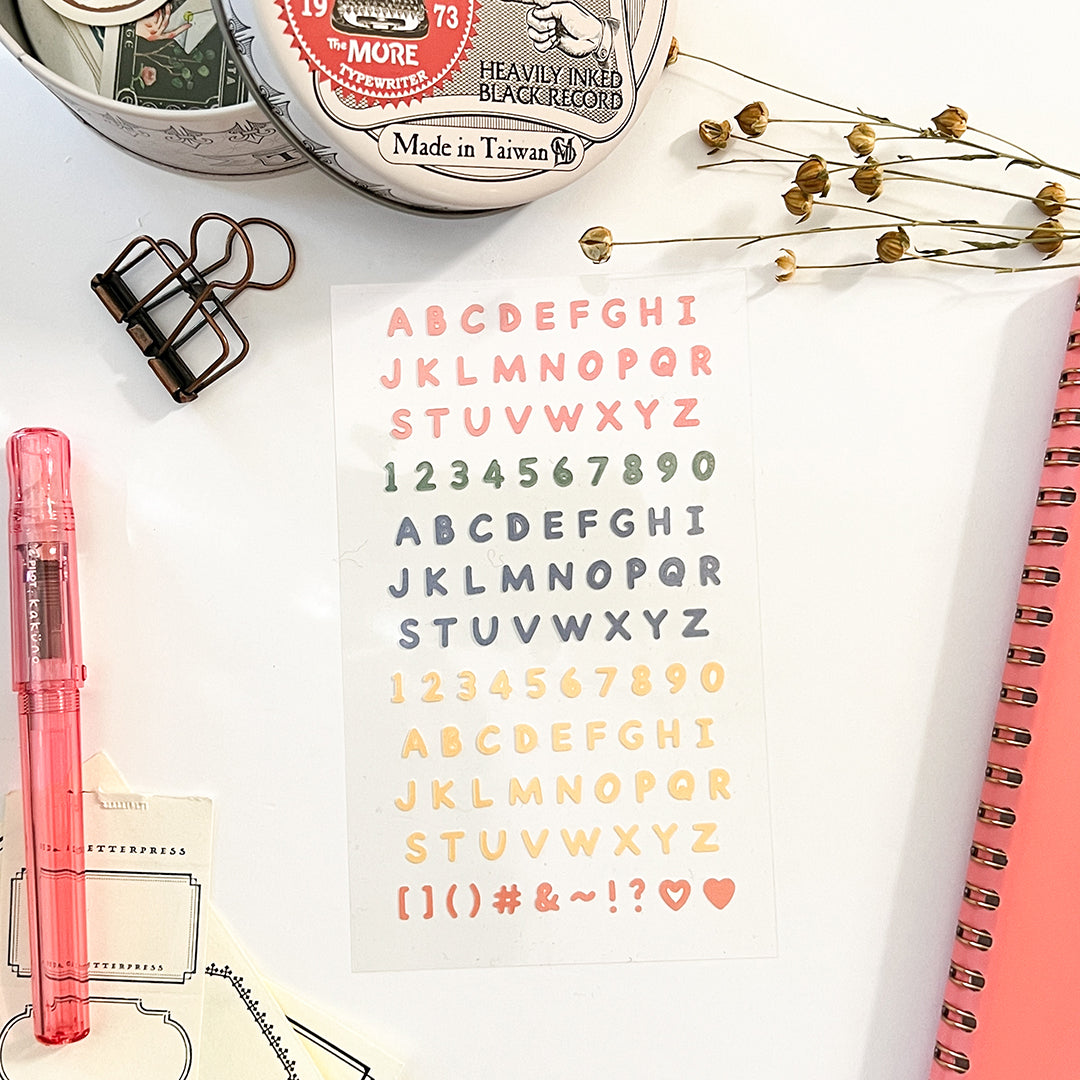 19 73
The MORE
TYPEWRITER
HEAVILY INKED
BLACK RECORD
Made in Taiwan
A B C D E F G H I
J K L M N O P Q R
S T U V W X Y Z
1 2 3 4 5 6 7 8 9 0
A B C D E F G H I
J K L M N O P Q R
S T U V W X Y Z
1 2 3 4 5 6 7 8 9 0
A B C D E F G H I
J K L M N O P Q R
S T U V W X Y Z
[ ] ( ) # & ~ ! ? ♡ ♥
PILOT kaküno
LETTERPRESS
LETTERPRESS